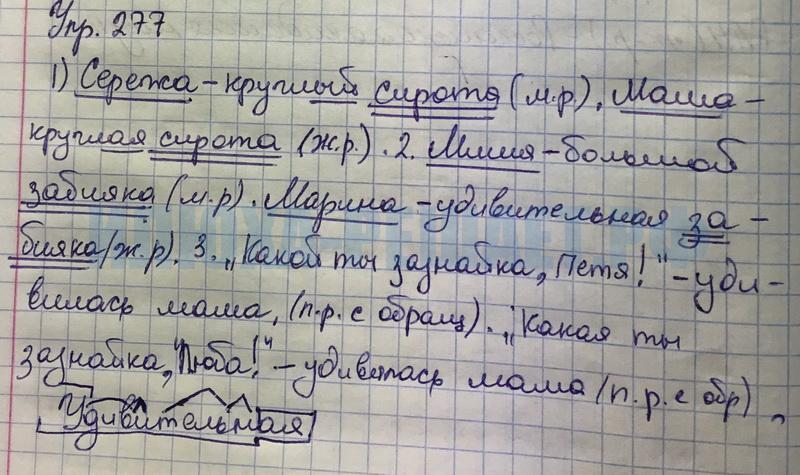 Упр. 277
1) Сережа – круглый сирота (м.р). Маша –
круглая сирота (ж.р.). 2. Миша – большой
забияка (м.р). Марина – удивительная за-
бияка (ж.р). 3. „Какой ты зазнайка, Петя!" – уди-
вилась мама, (п.р. с обращ). „Какая ты
зазнайка, Люба!" – удивилась мама (п.р. с обр)
Удивительная